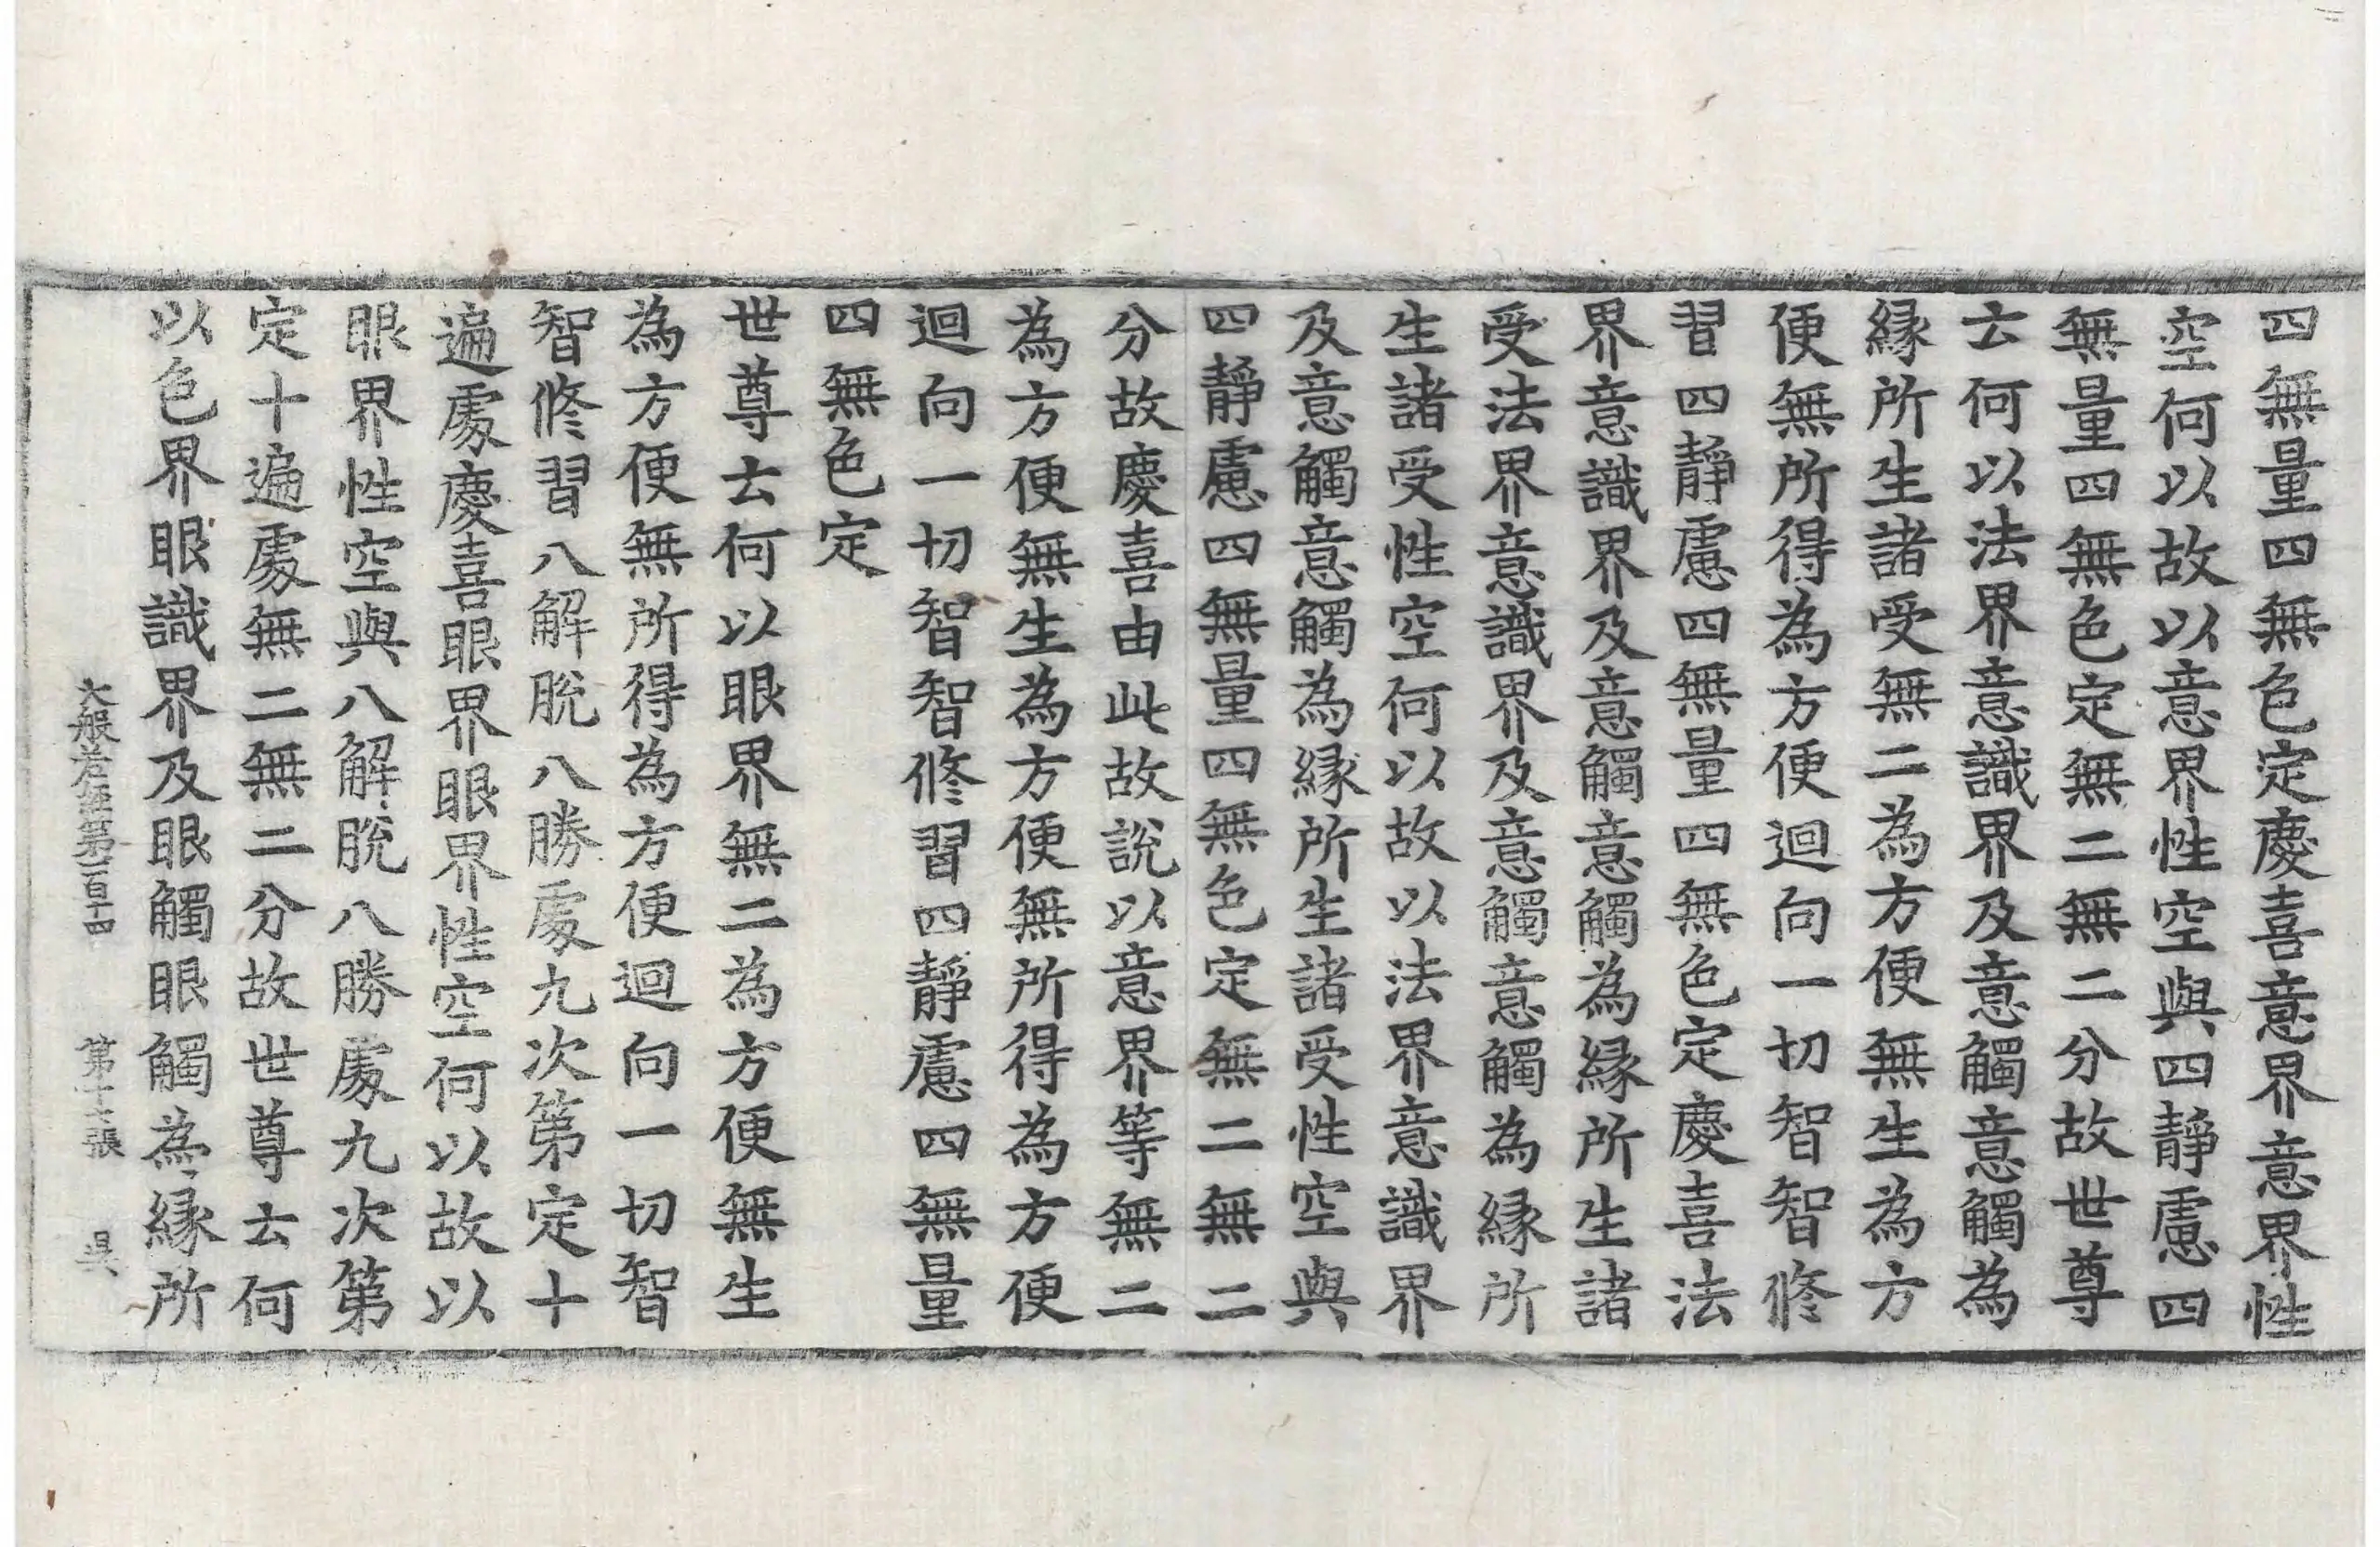 四無量四無色定慶喜意界意界性
空何以故以意界性空與四靜慮四
無量四無色定無二無二分故世尊
云何以法界意識界及意觸意觸為
緣所生諸受無二為方便無生為方
便無所得為方便迴向一切智智修
習四靜慮四無量四無色定慶喜法
界意識界及意觸意觸為緣所生諸
受法界意識界及意觸意觸為緣所
生諸受性空何以故以法界意識界
及意觸意觸為緣所生諸受性空與
四靜慮四無量四無色定無二無二
分故慶喜由此故說以意界等無二
為方便無生為方便無所得為方便
迴向一切智智修習四靜慮四無量
四無色定
世尊云何以眼界無二為方便無生
為方便無所得為方便迴向一切智
智修習八解脫八勝處九次第定十
遍處慶喜眼界眼界性空何以故以
眼界性空與八解脫八勝處九次第
定十遍處無二無二分故世尊云何
以色界眼識界及眼觸眼觸為緣所
大般若經第一百十四 第十六張